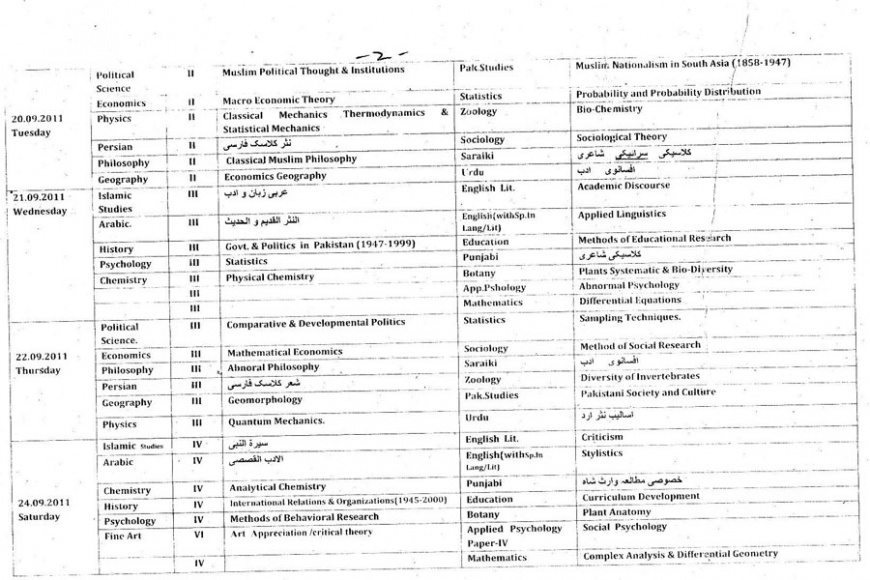 -2-
Political Science II Muslim Political Thought & Institutions Pak.Studies Muslim Nationalism in South Asia (1858-1947)
Economics II Macro Economic Theory Statistics Probability and Probability Distribution
20.09.2011 Tuesday Physics II Classical Mechanics Thermodynamics & Statistical Mechanics Zoology Bio-Chemistry
Persian II نثر کلاسک فارسی Sociology Sociological Theory
Philosophy II Classical Muslim Philosophy Saraiki کلاسیکی سرائیکی شاعری
Geography II Economics Geography Urdu افسانوی ادب
21.09.2011 Wednesday Islamic Studies III عربی زبان و ادب English Lit. Academic Discourse
Arabic. III النثر القدیم و الحدیث English(withSp.In Lang/Lit) Applied Linguistics
History III Govt. & Politics in Pakistan (1947-1999) Education Methods of Educational Research
Psychology III Statistics Punjabi کلاسیکی شاعری
Chemistry III Physical Chemistry Botany Plants Systematic & Bio-Diversity
III App.Pshology Abnormal Psychology
III Mathematics Differential Equations
Political Science. III Comparative & Developmental Politics Statistics Sampling Techniques.
22.09.2011 Thursday Economics III Mathematical Economics Sociology Method of Social Research
Philosophy III Abnoral Philosophy Saraiki افسانوی ادب
Persian III شعر کلاسک فارسی Zoology Diversity of Invertebrates
Geography III Geomorphology Pak.Studies Pakistani Society and Culture
Physics III Quantum Mechanics. Urdu اسالیب نثر ارد
Islamic Studies IV سیرۃ النبی English Lit. Criticism
Arabic IV الادب القصصی English(withSp.In Lang/Lit) Stylistics
Chemistry IV Analytical Chemistry Punjabi خصوصی مطالعہ وارث شاہ
24.09.2011 Saturday History IV International Relations & Organizations(1945-2000) Education Curriculum Development
Psychology IV Methods of Behavioral Research Botany Plant Anatomy
Fine Art VI Art Appreciation /critical theory Applied Psychology Paper-IV Social Psychology
IV Mathematics Complex Analysis & Differential Geometry